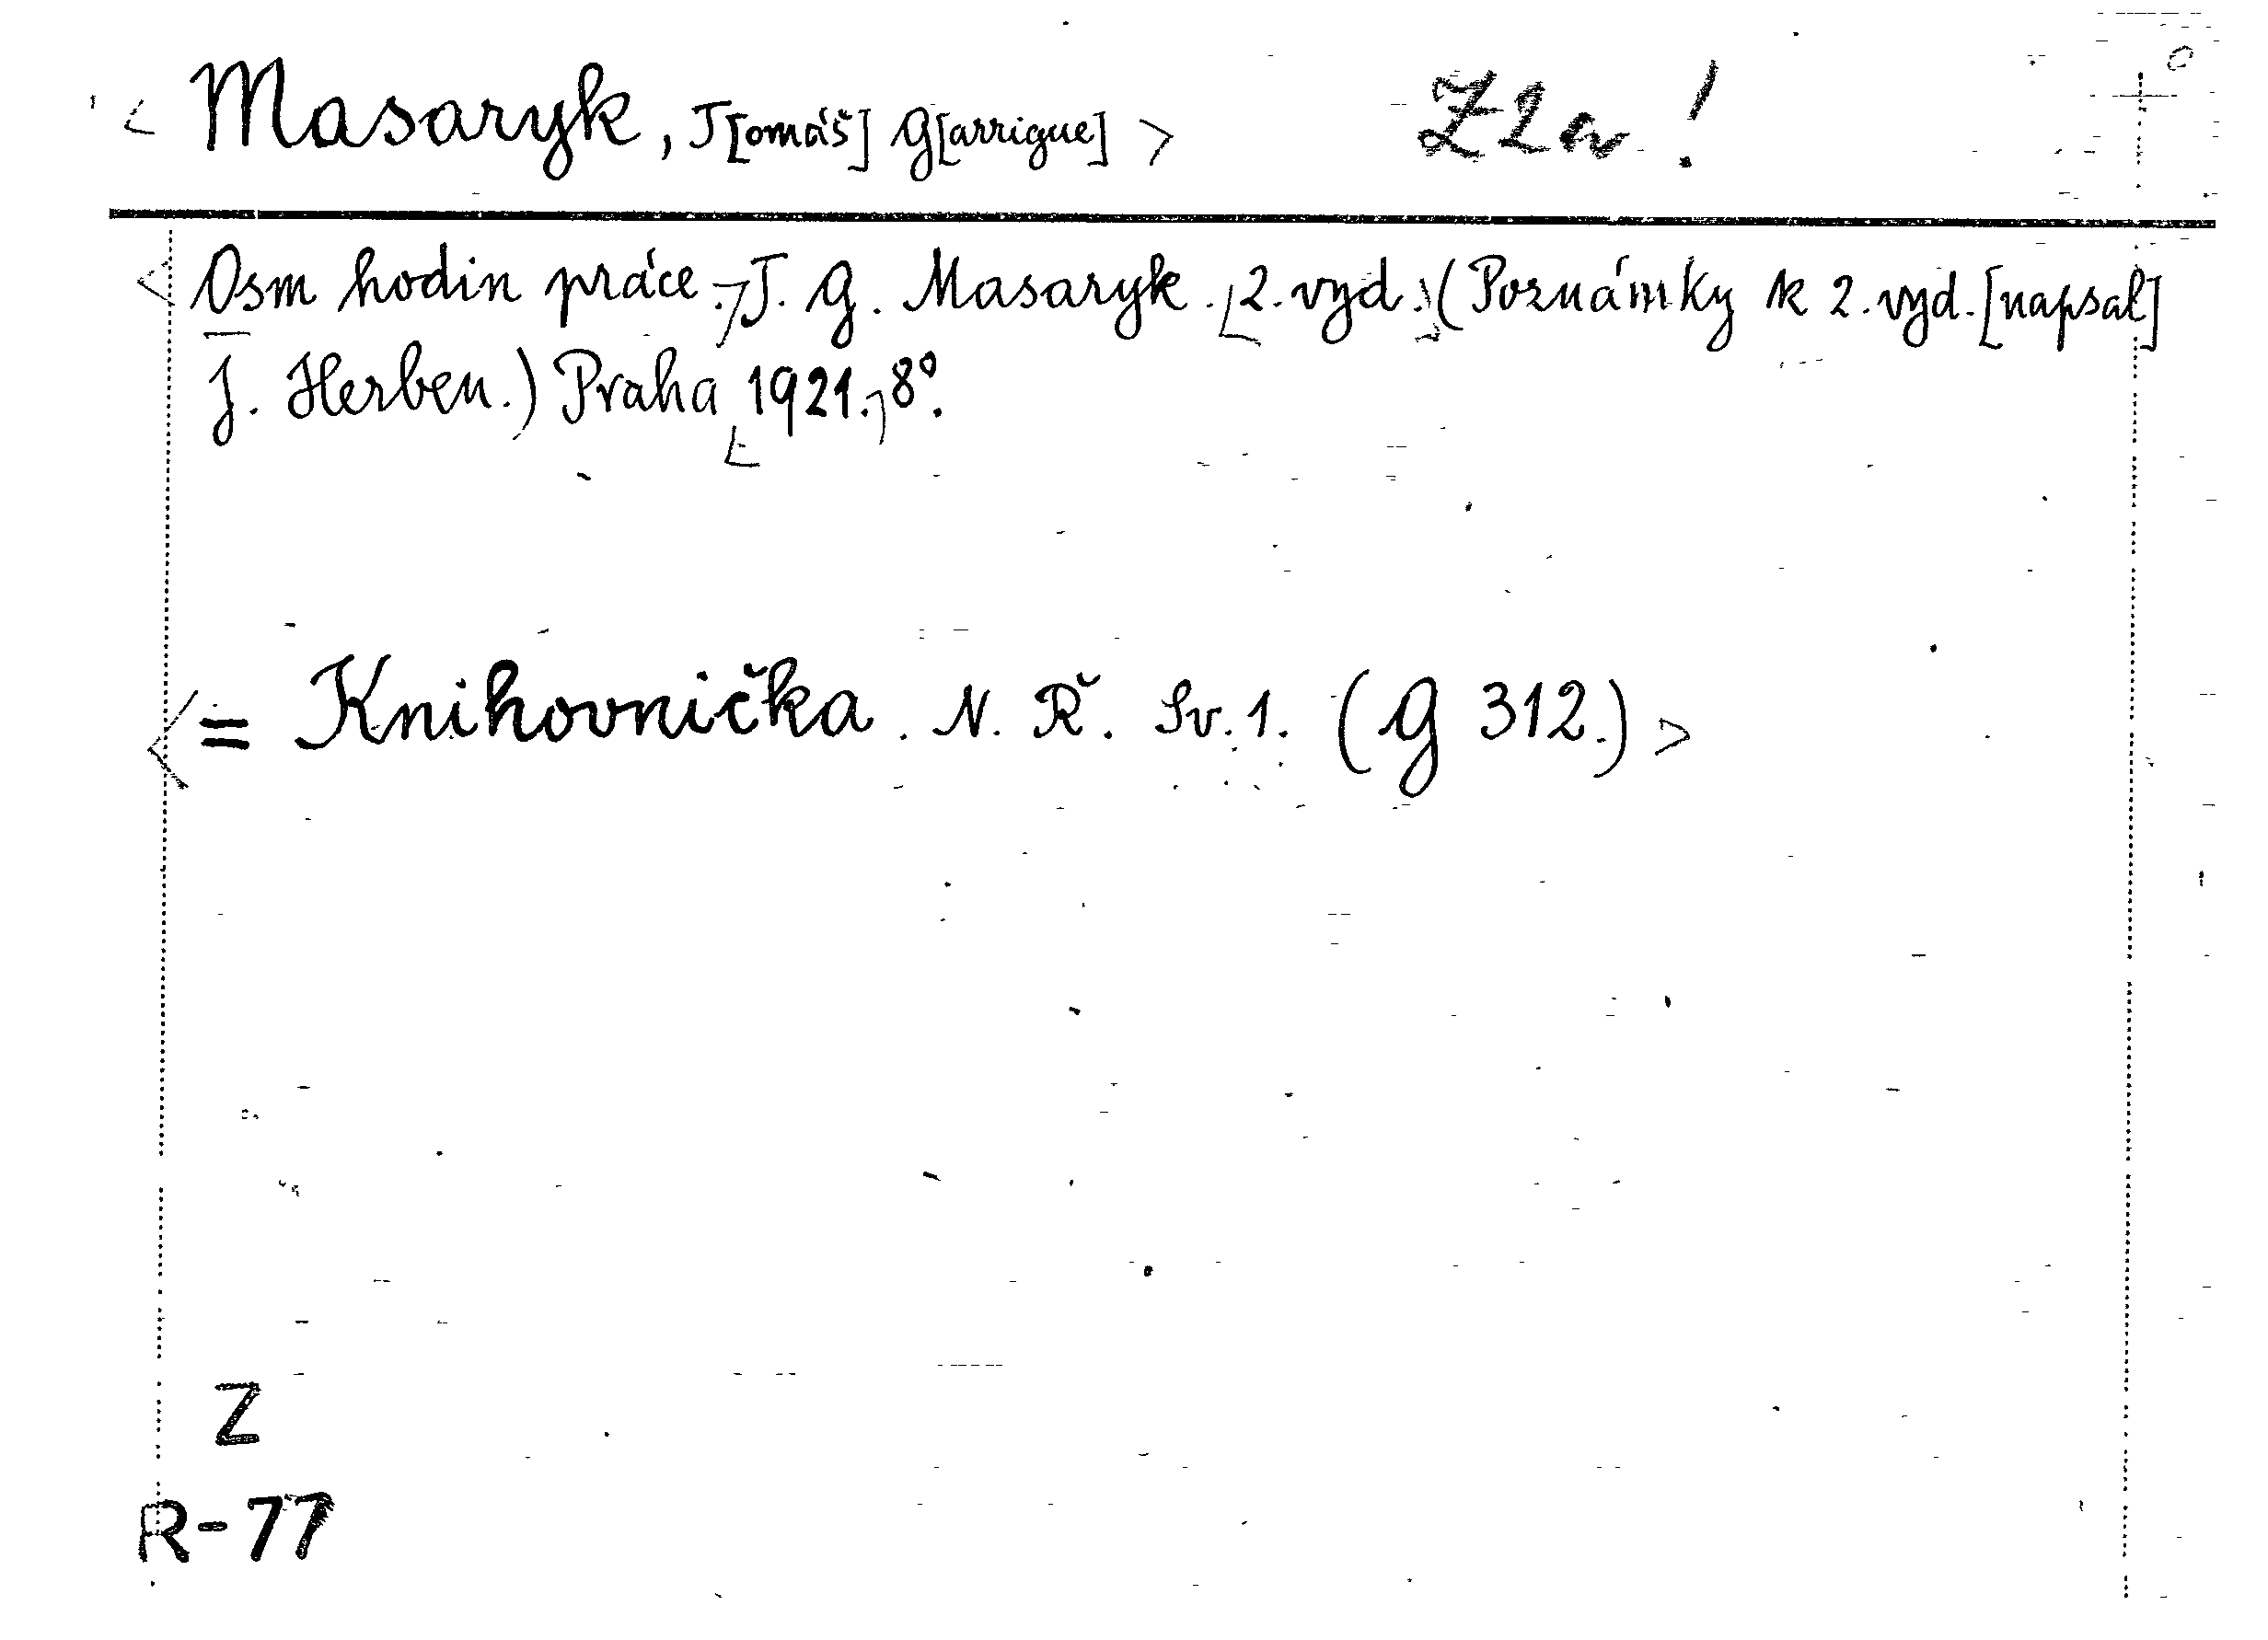 < Masaryk, T[omáš] G[arrigue] > Z2a!
< Osm hodin práce. T. G. Masaryk. 2. vyd. (Poznámky k 2. vyd. [napsal]
J. Herben.) Praha 1921. 8°.
< = Knihovnička. N. Ř. Sv. 1. (G 312.) >
Z
R-77